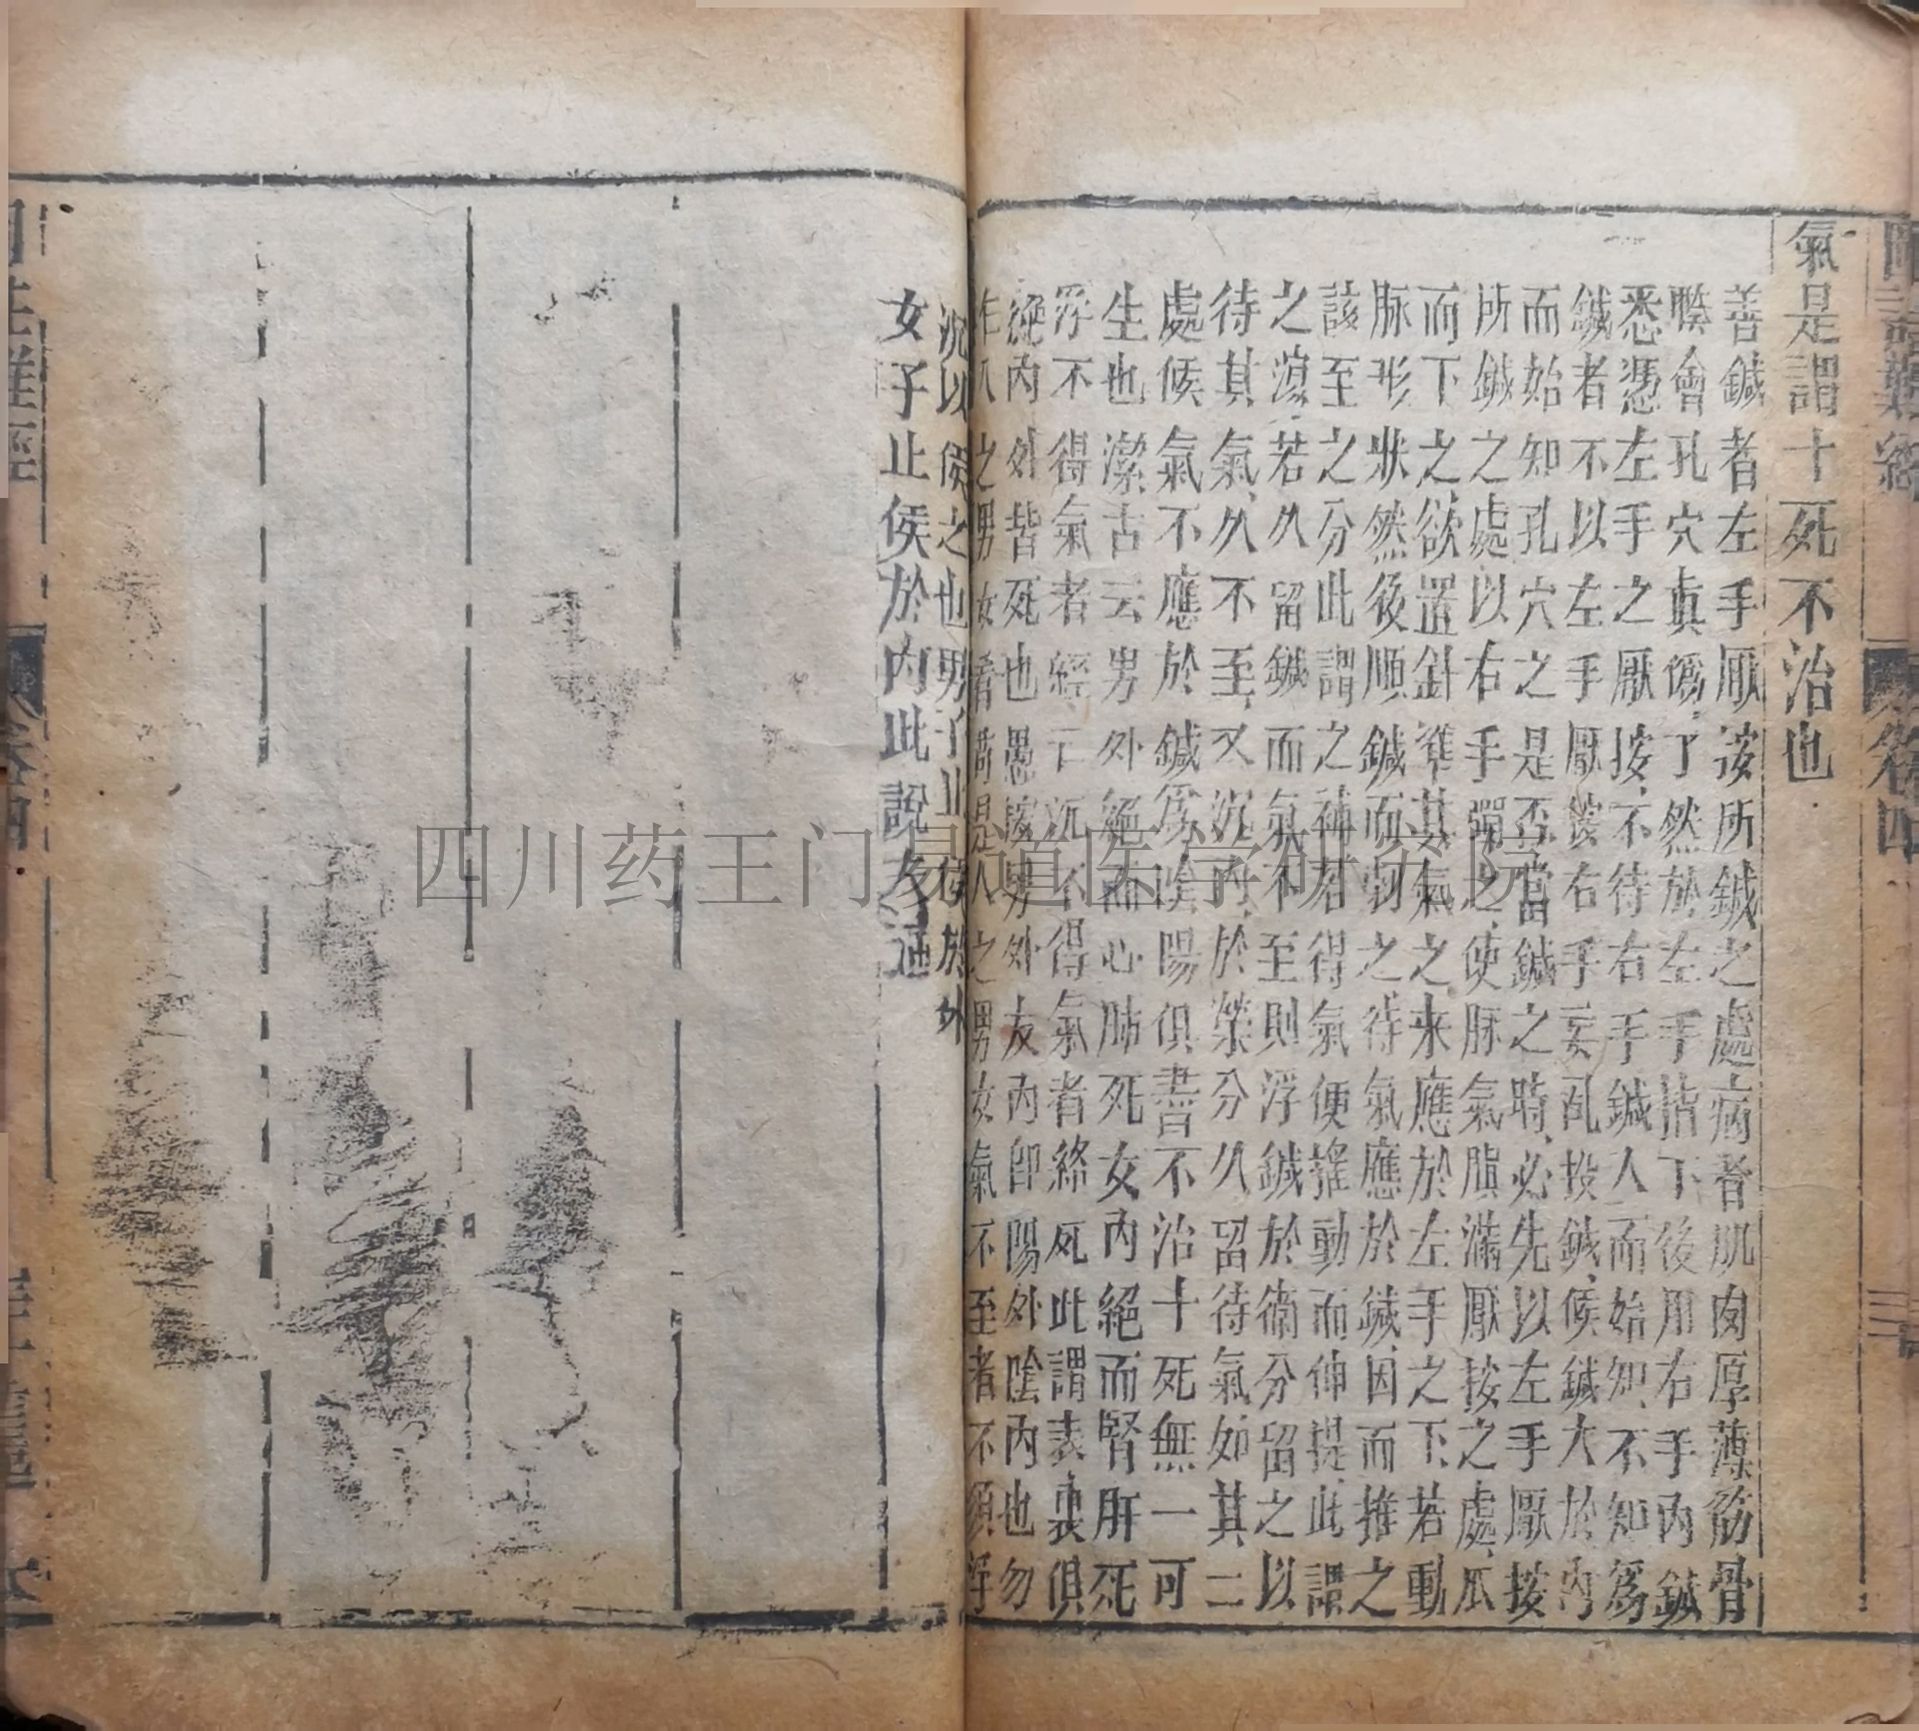 氣是謂十死不治也
善鍼者左手厭按所鍼之處病者肌肉厚薄筋骨
湊會孔穴真偽了然於左手指下後用右手內鍼
悉憑左手之厭按不待右手鍼人而始知不知為
鍼者不以左手厭按右手妄亂投鍼候鍼大於內
而始知孔穴之是否當鍼之時必先以左手厭按
所鍼之處以右手彈之使脈氣䐜滿厭按之處爪
而下之欲置針準其氣之来應於左手之下若動
脉形狀然後順鍼而刺之待氣應於鍼因而推之
該至之分此謂之補若得氣便搖動而伸提此謂
之瀉若久留鍼而氣不至則浮鍼於衛分留之以
待其氣久不至又沉內於榮分久留待氣如其二
處候氣不應於鍼爲陰陽俱盡不治十死無一可
生也潔古云男外絕而心肺死女內絕而腎肝死
浮不得氣者經云沉不得氣者絡死此謂表裏俱
絕內外皆死也愚按男外女內即陽外陰內也勿
作八之男女看爲是人之男女氣不至者不須浮
沉以侯之也男子止侯於外
女子止侯於內此說友通
卷四
四川药王门易道医学研究院